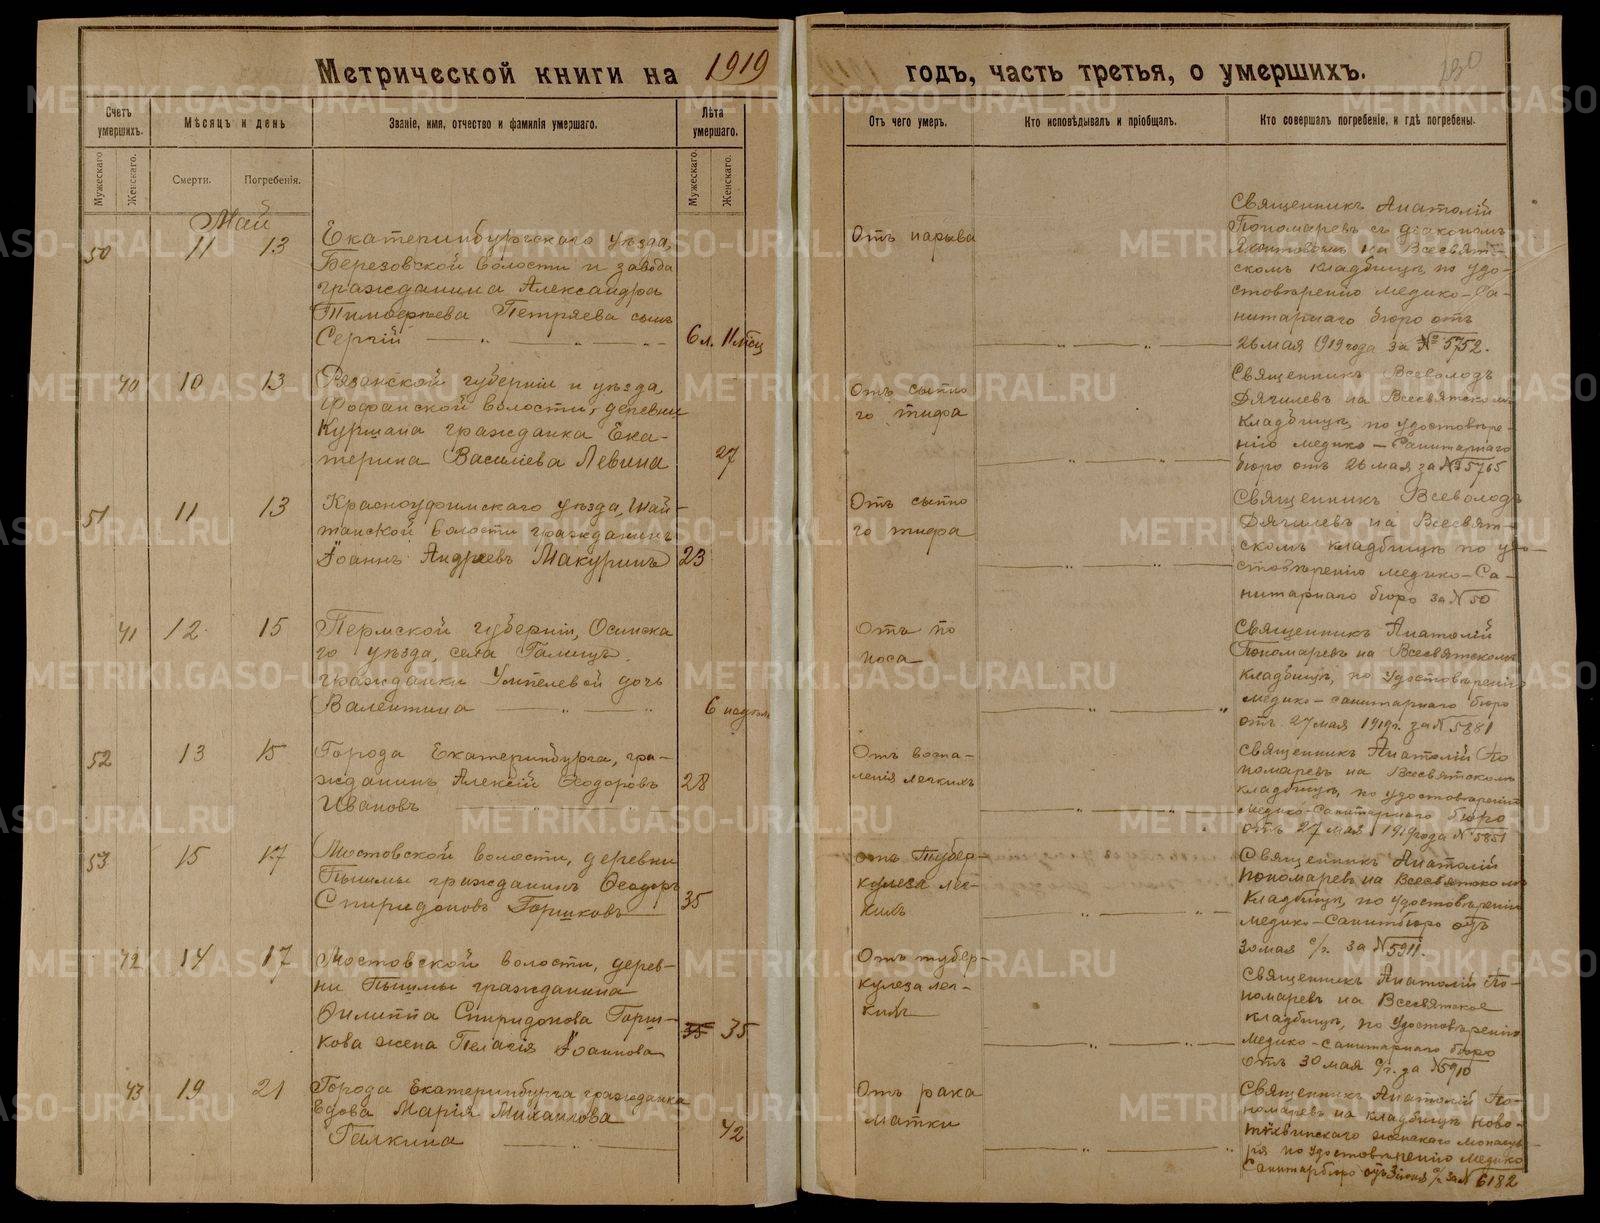 Метрической книги на 1919 годъ, часть третья, о умершихъ.
130
Счетъ умершихъ.
Мѣсяцъ и день
Званіе, имя, отчество и фамилія умершаго.
Лѣта умершаго.
Отъ чего умеръ.
Кто исповѣдывалъ и пріобщалъ.
Кто совершалъ погребеніе, и гдѣ погребены.
Мужескаго.
Женскаго.
Смерти.
Погребенія.
Мужескаго.
Женскаго.
Май
50
11
13
Екатеринбургскаго уѣзда,
Березовской волости и завода
гражданина Александра
Тимоѳеева Петряева сынъ
Сергій
6 л. 11 мѣсц
Отъ нарыва
Священникъ Анатолій
Пономаревъ съ діакономъ
на Всесвят-
скомъ кладбищѣ по удо-
стовѣренію медико-Са-
нитарнаго бюро отъ
26 мая 1919 года за № 5752.
40
10
13
Рязанской губерніи и уѣзда,
волости, деревни
гражданка Ека-
терина Василіева Левина
27
Отъ сыпно
го тифа
Священникъ Всеволодъ
Дягилевъ на Всесвятскомъ
кладбищѣ, по удостовѣре-
нію медико-Санитарнаго
бюро отъ 26 мая за № 5765
51
11
13
Красноуфимскаго уѣзда, Шай-
танской волости гражданинъ
Іоаннъ Андреевъ Макуринъ
23
Отъ сыпно
го тифа
Священникъ Всеволодъ
Дягилевъ на Всесвят-
скомъ кладбищѣ по удо-
стовѣренію медико-Са-
нитарнаго бюро за № 50
41
12
15
Пермской губерніи, Осинска
го уѣзда, села
гражданки дочь
Валентина
6
Отъ по
носа
Священникъ Анатолій
Пономаревъ на Всесвятскомъ
кладбищѣ, по удостовѣренію
медико-санитарнаго бюро
отъ 27 мая 1919 г. за № 5881
52
13
15
Города Екатеринбурга, гра-
жданинъ Алексій Ѳеодоровъ
Ивановъ
28
Отъ воспа-
ленія легкихъ
Священникъ Анатолій По
номаревъ на Всесвятскомъ
кладбищѣ, по удостовѣренію
Медико-Санитарнаго бюро
отъ 27 мая 1919 года № 5851
53
15
17
Мостовской волости, деревни
Пышмы гражданинъ Ѳеодоръ
Спиридоновъ Горшковъ
35
отъ Тубер-
кулеза лег-
кихъ
Священникъ Анатолій
Пономаревъ на Всесвятскомъ
кладбищѣ, по удостовѣренію
медико-Санитбюро отъ
30 мая с/г. за № 5911.
42
14
17
Мостовской волости, дерев-
ни Пышмы гражданина
Филиппа Спиридонова Горш-
кова жена Пелагія Іоаннова
35 35
Отъ тубер-
кулеза лег-
кихъ
Священникъ Анатолій По-
номаревъ на Всесвятское
кладбищѣ, по удостовѣренію
Медико-Санитарнаго бюро
отъ 30 мая с/г. за № 5910
43
19
21
Города Екатеринбурга гражданка
вдова Марія Михаилова
Галкина
42
Отъ рака
матки
Священникъ Анатолій По-
номаревъ на кладбищѣ Ново-
тихвинскаго женскаго монасты-
ря по удостовѣренію Медико
Санитарбюро отъ 3 іюня с/г за № 6182
METRIKI.GASO-URAL.RU